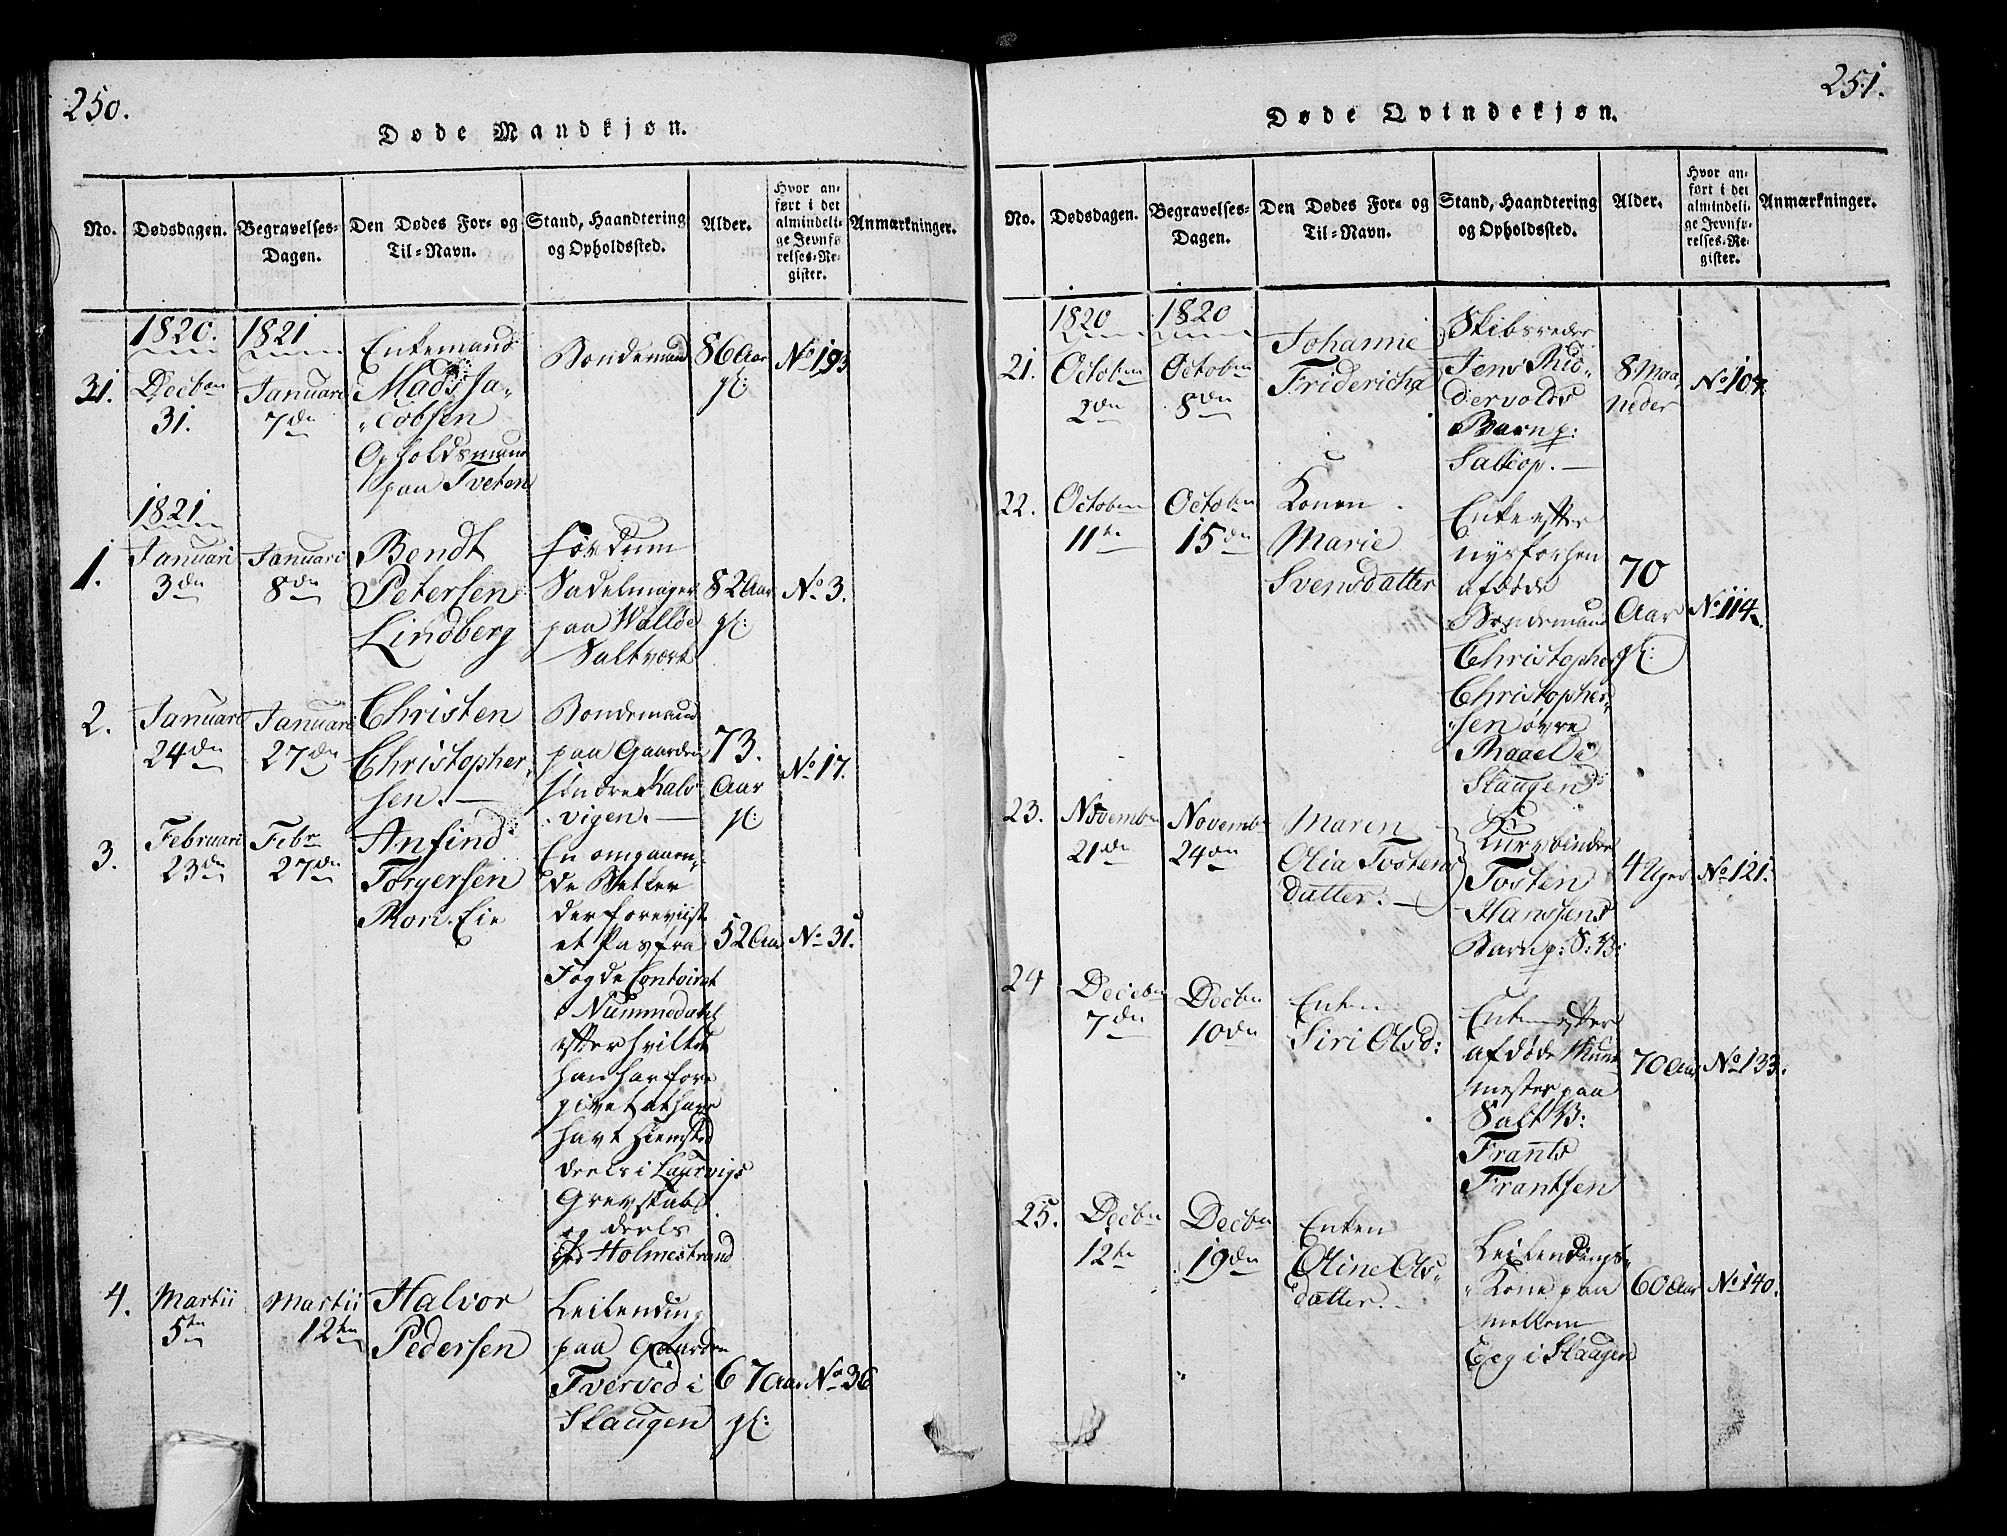 250.
Døde Mandkjøn.
No. Dødsdagen. Begravelses-Dagen. Den Dødes For- og Til-Navn. Stand, Haandtering og Opholdssted. Alder. Hvor anført i det almindelige Jevnførelses-Register. Anmærkninger.
1820. 1821
31. Decbr 31. Januari 7de
Enkemand
Mads Ja-
cobsen
Opholdsmand
paa Tveten
Bondemand
86 Aar
gl:
No 193
1821
1. Januari 3de Januari 8de
Bendt
Petersen
Lindberg
fordum
Sadelmager
paa Walløe
Saltværk
82 Aar
gl:
No 3.
2. Januari 24de Januari 27de
Christen
Christopher-
sen.
Bondemand
paa Gaarden
søndre Kals-
vigen.
73.
Aar
gl:
No 17.
3. Februari 23de Febr 27de
Anfind
Torgersen
Mori. Eie
En omgaaen-
de
der foreviist
et Pas fra
Fogde Contoiret
Nummedahl
efter hvilket
han har fore
givet at have
havt Hiemsted
deels i Laurvigs
Grevskabet
og deels
Holmestrand
52 Aar
No 31.
4. Martii 5te Martii 12te
Halvor
Pedersen
Leilending
paa Gaarden
Tverved i
Slaugen
67 Aar
gl:
No 36
251.
Døde Qvindekjøn.
No. Dødsdagen. Begravelses-Dagen. Den Dødes For- og Til-Navn. Stand, Haandtering og Opholdssted. Alder. Hvor anført i det almindelige Jevnførelses-Register. Anmærkninger.
1820 1820
21. Octobr 2de Octobr 8de
Johanne
Fridericha
Skibsreder
Jens Rid-
dervolds
Barn p:
Salteop.
8 Maa
neder
No 107.
22. October 11te Octobr 15de
Konen
Marie
Svensdatter
Enke efter
nys forhen
afdøde
Bondemand
Christopher
Christopher-
sen øvre
Råael i
Slaugen
70
Aar
gl:
No 114.
23. Novembr 21de Novembr 24de
Maren
Olia Tostens
datter.
Kurvbinder
Tosten
Hanssens
Barn p: S: V:
4 Uger
No 121.
24 Decbr 7de Decbr 10de
Enken
Siri Olsd:
Enke efter
afdøde Muur
mester paa
Salt V:
Frants
Frantsen
70 Aar
No 133.
25. Decbr 12te Decbr 19de
Enken
Oline Ols-
datter.
Leilendings-
Kone paa
mellem
Eeg i Slaugen
60 Aar
No 140.